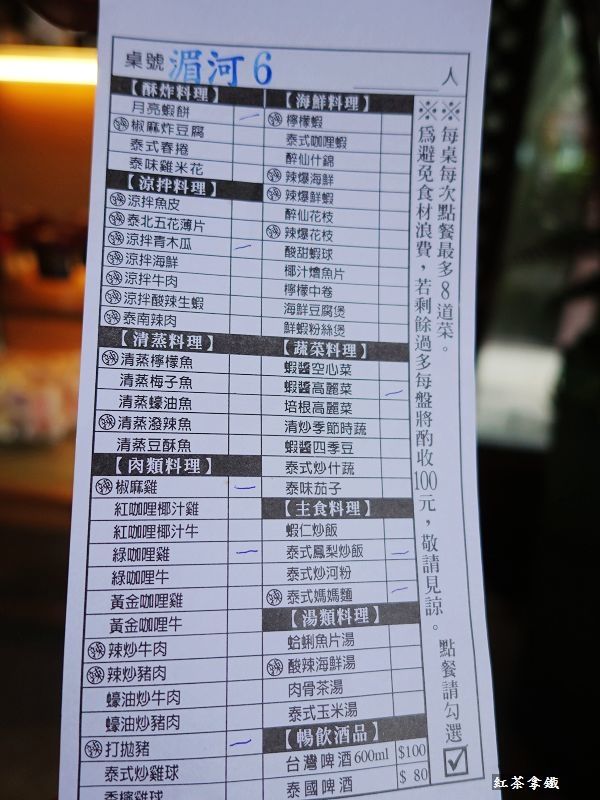 桌號 湄河6 人
【酥炸料理】
月亮蝦餅
辣 椒麻炸豆腐
泰式春捲
泰味雞米花
【涼拌料理】
辣 涼拌魚皮
辣 泰北五花薄片
辣 涼拌青木瓜
辣 涼拌海鮮
辣 涼拌牛肉
辣 涼拌酸辣生蝦
辣 泰南辣肉
【清蒸料理】
辣 清蒸檸檬魚
清蒸梅子魚
清蒸蠔油魚
辣 清蒸潑辣魚
清蒸豆酥魚
【肉類料理】
辣 椒麻雞
紅咖哩椰汁雞
紅咖哩椰汁牛
綠咖哩雞
綠咖哩牛
黃金咖哩雞
黃金咖哩牛
辣 辣炒牛肉
辣 辣炒豬肉
蠔油炒牛肉
蠔油炒豬肉
辣 打拋豬
泰式炒雞球
香檸雞球
【海鮮料理】
辣 檸檬蝦
泰式咖哩蝦
醉仙什錦
辣 辣爆海鮮
辣 辣爆鮮蝦
醉仙花枝
辣 辣爆花枝
酸甜蝦球
椰汁燴魚片
檸檬中卷
海鮮豆腐煲
鮮蝦粉絲煲
【蔬菜料理】
蝦醬空心菜
蝦醬高麗菜
培根高麗菜
清炒季節時蔬
蝦醬四季豆
泰式炒什蔬
泰味茄子
【主食料理】
蝦仁炒飯
泰式鳳梨炒飯
泰式炒河粉
泰式媽媽麵
【湯類料理】
蛤蜊魚片湯
辣 酸辣海鮮湯
肉骨茶湯
泰式玉米湯
【暢飲酒品】
台灣啤酒600ml $100
泰國啤酒 $ 80
※每桌每次點餐最多8道菜。
※為避免食材浪費，若剩餘過多每盤將酌收100元，敬請見諒。
點餐請勾選☑
紅茶拿鐵